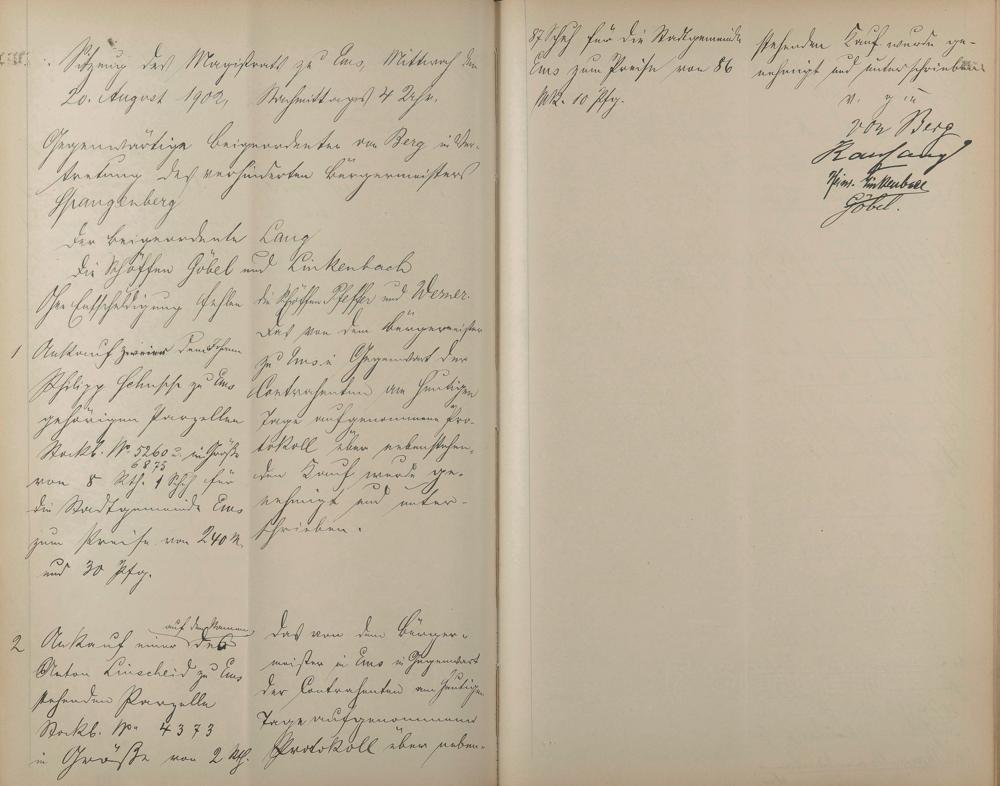 Sitzung des Magistrats zu Ems, Mittwoch den
20. August 1902, Nachmittags 4 Uhr.
Gegenwärtige Beigeordneter von Berg in Ver-
tretung des verhinderten Bürgermeisters
Spangenberg
Der Beigeordnete Lang
Die Schöffen Göbel und Linkenbach
Ohne Entschuldigung fehlen die Schöffen Pfeffer und Werner.
1
Ankauf zweier dem
Philipp zu Ems
gehörigen Parzellen
Stockb. No. 5260 u. in Größe
6875
von 8 Rth. 1 Schuh für
die Stadtgemeinde Ems
zum Preise von 240 M.
und 30 Pfg.
Das von dem Bürgermeister
zu Ems in Gegenwart der
Contrahenten am heutigen
Tage aufgenommene Pro-
tokoll über nebenstehen-
den Kauf wurde ge-
nehmigt und unter-
schrieben.
2
auf den Namen
Ankauf einer des
Anton Linscheid zu Ems
stehenden Parzelle
Stockb. No. 4373
in Größe von 2 Rth.
Das von dem Bürger-
meister in Ems in Gegenwart
der Contrahenten am heutigen
Tage aufgenommene
Protokoll über neben-
87 Schuh für die Stadtgemeinde
Ems zum Preise von 86
Mk. 10 Pfg.
stehenden Kauf wurde ge-
nehmigt und unterschrieben
v. g. u.
von Berg
Linkenbach
Göbel.